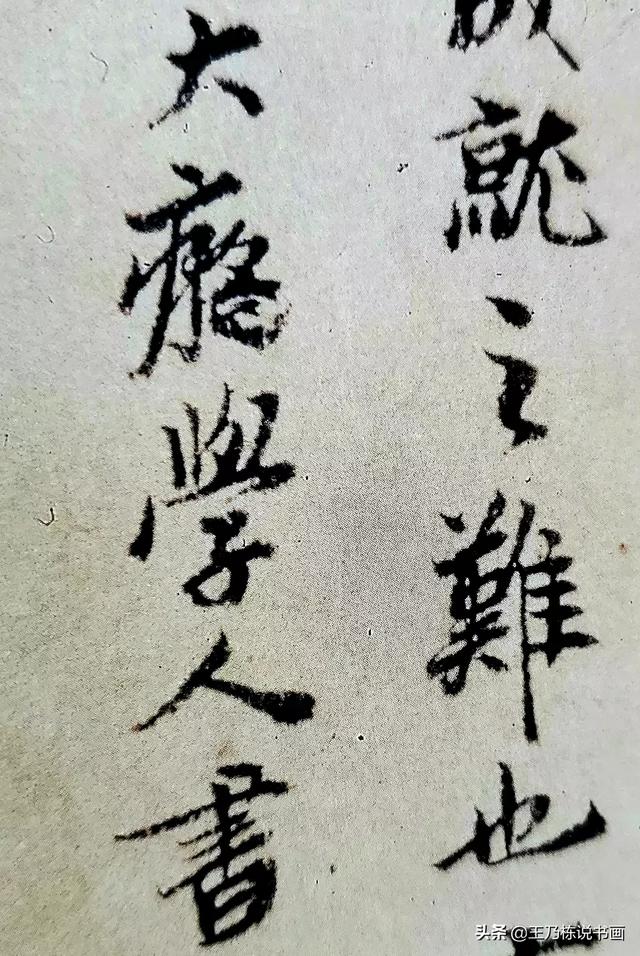 就之難也
大癡學人書
头条 @王乃栋说书画